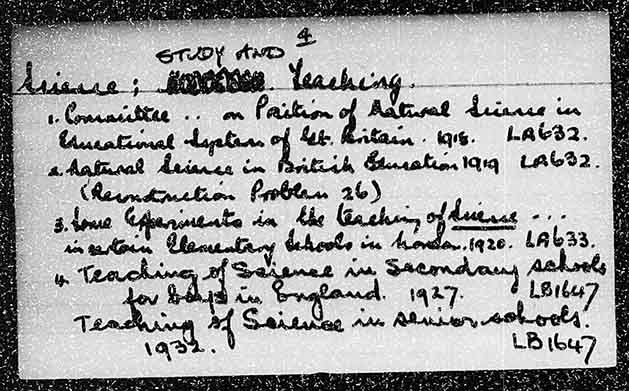 4
STUDY AND
Science; Teaching.
1. Committee .. on Position of Natural Science in
Educational System of Gt. Britain. 1918. LA632.
2. Natural Science in British Education 1919 LA632.
(Reconstruction Problem 26)
3. Some Experiments in the teaching of Science ...
in certain Elementary Schools in London. 1920. LA633.
4. Teaching of Science in Secondary schools
for boys in England. 1927. LB1647
Teaching of Science in senior schools.
1932. LB1647